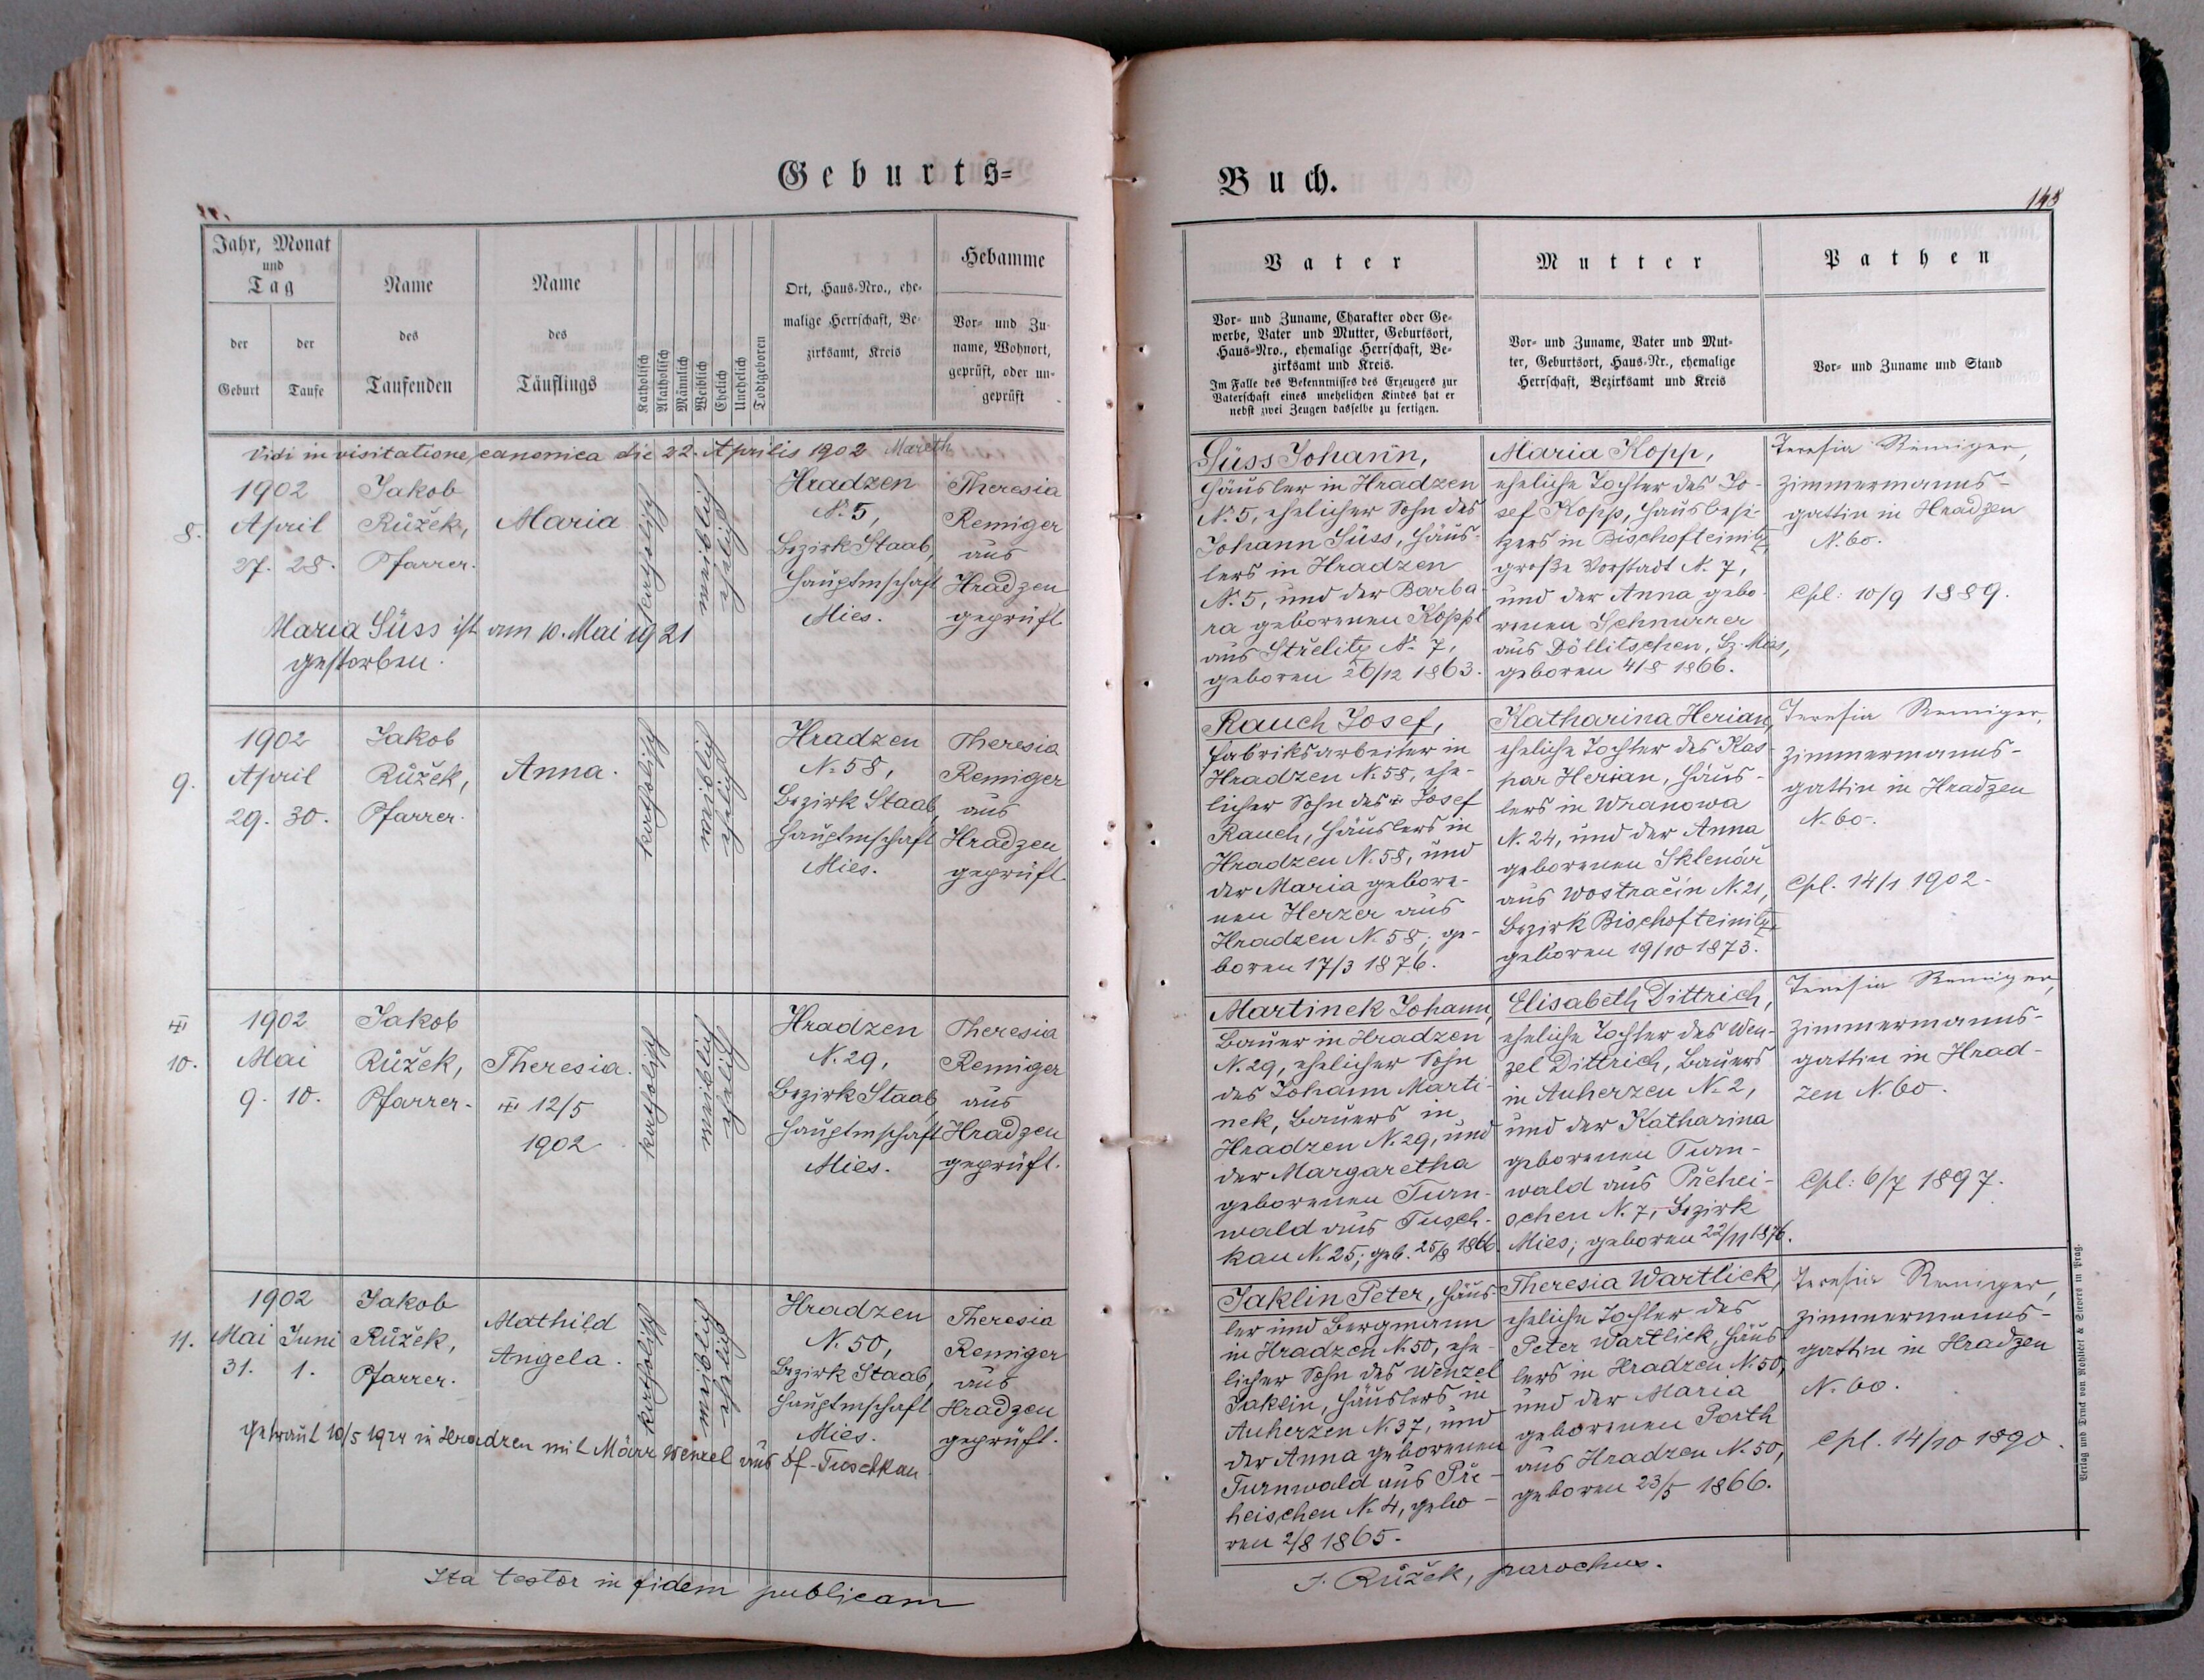 Geburts=
Jahr, Monat
und
Tag
der
Geburt
der
Taufe
Name
des
Taufenden
Name
des
Täuflings
Katholisch
Akatholisch
Männlich
Weiblich
Ehelich
Unehelich
Todtgeboren
Ort, Haus-Nro., ehe-
malige Herrschaft, Be-
zirksamt, Kreis
Hebamme
Vor- und Zu-
name, Wohnort,
geprüft, oder un-
geprüft
Vidi in visitatione canonica die 22. Aprilis 1902 Mareth
8.
1902
April
27. 28.
Jakob
Růžek,
Pfarrer.
Maria
katholisch
weiblich
ehelich
Hradzen
N. 5,
Bezirk Staab,
Hauptmschaft
Mies.
Theresia
Remiger
aus
Hradzen
geprüft.
Maria Süss ist am 10. Mai 1921
gestorben.
9.
1902
April
29. 30.
Jakob
Růžek,
Pfarrer.
Anna.
katholisch
weiblich
ehelich
Hradzen
N. 58,
Bezirk Staab,
Hauptmschaft
Mies.
Theresia
Remiger
aus
Hradzen
geprüft.
10.
1902
Mai
9. 10.
Jakob
Růžek,
Pfarrer.
Theresia.
12/5
1902
katholisch
weiblich
ehelich
Hradzen
N. 29,
Bezirk Staab,
Hauptmschaft
Mies.
Theresia
Remiger
aus
Hradzen
geprüft.
11.
1902
Mai Juni
31. 1.
Jakob
Růžek,
Pfarrer.
Mathild
Angela.
katholisch
weiblich
ehelich
Hradzen
N. 50,
Bezirk Staab,
Hauptmschaft
Mies.
Theresia
Remiger
aus
Hradzen
geprüft.
Getraut 10/5 1924 in Hradzen mit Märr Wenzel aus Df-Tuschkau
Ita testor in fidem publicam
Buch.
148
Vater
Vor- und Zuname, Charakter oder Ge-
werbe, Vater und Mutter, Geburtsort,
Haus-Nro., ehemalige Herrschaft, Be-
zirksamt und Kreis.
Im Falle des Bekenntnisses des Erzeugers zur
Vaterschaft eines unehelichen Kindes hat er
nebst zwei Zeugen dasselbe zu fertigen.
Mutter
Vor- und Zuname, Vater und Mut-
ter, Geburtsort, Haus-Nr., ehemalige
Herrschaft, Bezirksamt und Kreis
Pathen
Vor- und Zuname und Stand
Süss Johann,
Häusler in Hradzen
N. 5, ehelicher Sohn des
Johann Süss, Häus-
lers in Hradzen
N. 5, und der Barba-
ra geborenen Koppl
aus Střelitz N. 7,
geboren 26/12 1863.
Maria Kopp,
eheliche Tochter des Jo-
sef Kopp, Hausbesi-
tzers in Bischofteinitz,
große Vorstadt N. 7,
und der Anna gebo-
renen Schnurrer
aus Döllitschen, Bz. Mies,
geboren 4/8 1866.
Teresia Remiger,
Zimmermanns-
gattin in Hradzen
N. 60.
Cpl: 10/9 1889.
Rauch Josef,
Fabriksarbeiter in
Hradzen N. 58, ehe-
licher Sohn des Josef
Rauch, Häuslers in
Hradzen N. 58, und
der Maria gebore-
nen Herzer aus
Hradzen N. 58; ge-
boren 17/3 1876.
Katharina Herian,
eheliche Tochter des Kas-
par Herian, Häus-
lers in Wranowa
N. 24, und der Anna
geborenen Sklenář
aus Wostračín N. 21,
Bezirk Bischofteinitz,
geboren 19/10 1873.
Teresia Remiger,
Zimmermanns-
gattin in Hradzen
N. 60.
Cpl. 14/1 1902.
Martinek Johann,
Bauer in Hradzen
N. 29, ehelicher Sohn
des Johann Marti-
nek, Bauers in
Hradzen N. 29, und
der Margaretha
geborenen Turn-
wald aus Tusch-
kau N. 25; geb. 25/8 1866.
Elisabeth Dittrich,
eheliche Tochter des Wen-
zel Dittrich, Bauers
in Auherzen N. 2,
und der Katharina
geborenen Turn-
wald aus Přehei-
schen N. 7, Bezirk
Mies; geboren 22/11 1876.
Teresia Remiger,
Zimmermanns-
gattin in Hrad-
zen N. 60.
Cpl: 6/7 1897.
Jaklin Peter, Häus-
ler und Bergmann
in Hradzen N. 50, ehe-
licher Sohn des Wenzel
Jaklin, Häuslers in
Auherzen N. 37, und
der Anna geborenen
Turnwald aus Pře-
heischen N. 4, gebo-
ren 2/8 1865.
Theresia Wartlick,
eheliche Tochter des
Peter Wartlick, Häus-
lers in Hradzen N. 50,
und der Maria
geborenen Porth
aus Hradzen N. 50,
geboren 23/5 1866.
Teresia Remiger,
Zimmermanns-
gattin in Hradzen
N. 60.
Cpl. 14/10 1890.
J. Růžek, parochus.
Verlag und Druck von Rohliček & Sievers in Prag.